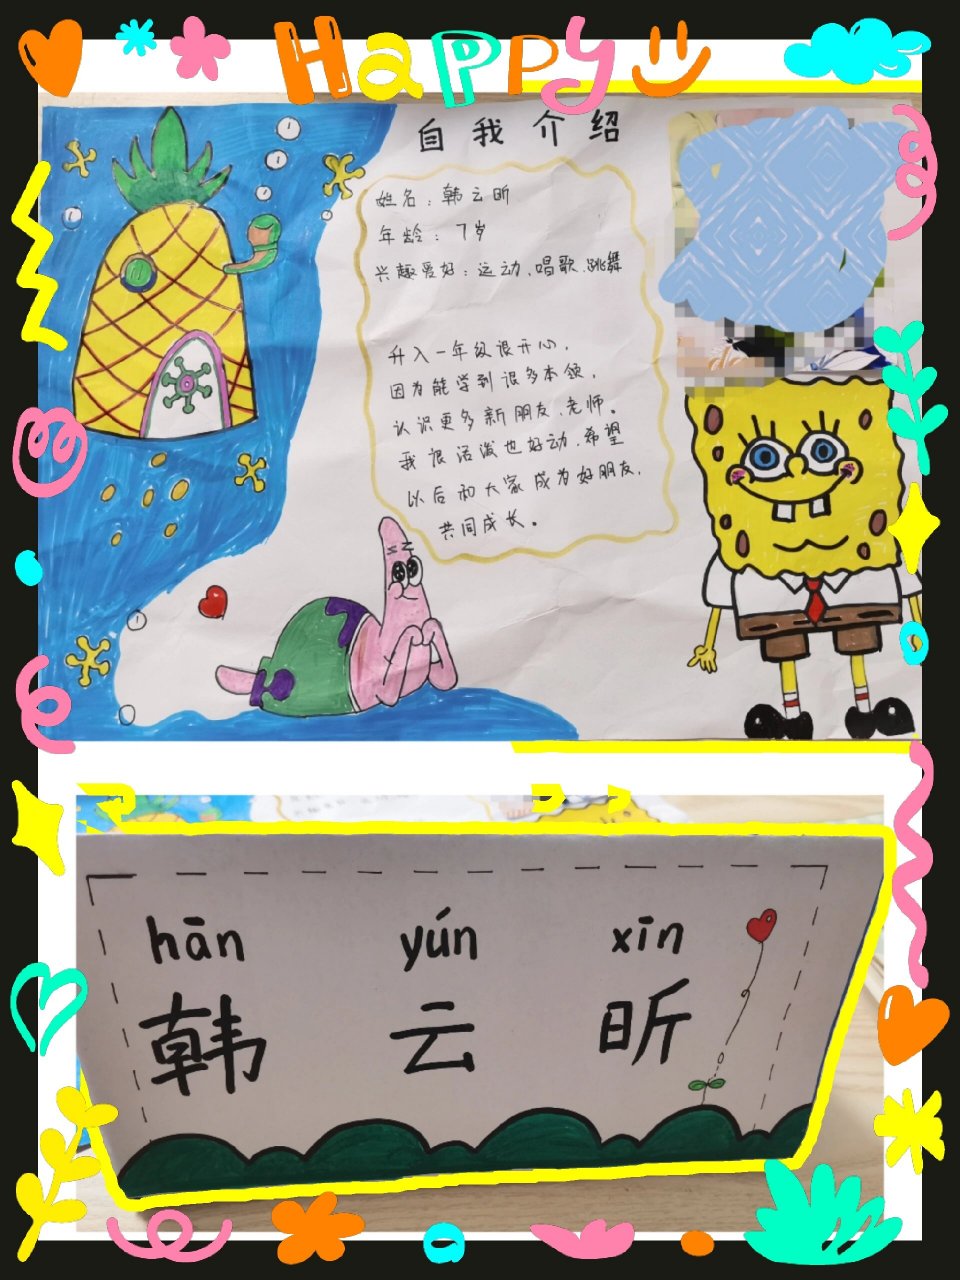 Happy
自我介绍
姓名：韩云昕
年龄：7岁
兴趣爱好：运动、唱歌、跳舞
升入一年级很开心，
因为能学到很多本领，
认识更多新朋友、老师。
我很活泼也好动，希望
以后和大家成为好朋友，
共同成长。
hān yún xīn
韩 云 昕